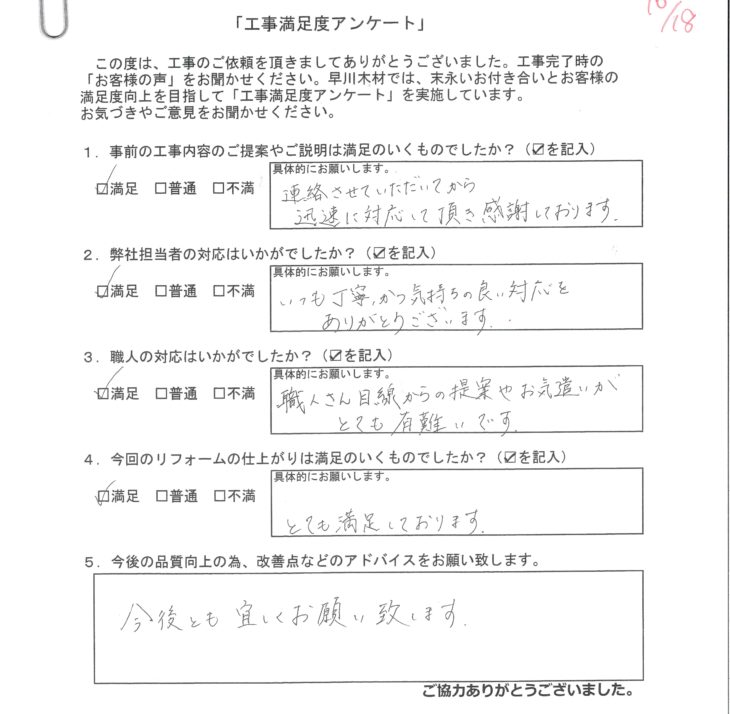 10/18
「工事満足度アンケート」
この度は、工事のご依頼を頂きましてありがとうございました。工事完了時の
「お客様の声」をお聞かせください。早川木材では、末永いお付き合いとお客様の
満足度向上を目指して「工事満足度アンケート」を実施しています。
お気づきやご意見をお聞かせください。
1．事前の工事内容のご提案やご説明は満足のいくものでしたか？（☑を記入）
☑満足 □普通 □不満
具体的にお願いします。
連絡させていただいてから
迅速に対応して頂き感謝しております．
2．弊社担当者の対応はいかがでしたか？（☑を記入）
☑満足 □普通 □不満
具体的にお願いします。
いつも丁寧，かつ気持ちの良い対応を
ありがとうございます．
3．職人の対応はいかがでしたか？（☑を記入）
☑満足 □普通 □不満
具体的にお願いします。
職人さん目線からの提案やお気遣いが
とても有難いです．
4．今回のリフォームの仕上がりは満足のいくものでしたか？（☑を記入）
☑満足 □普通 □不満
具体的にお願いします。
とても満足しております．
5．今後の品質向上の為、改善点などのアドバイスをお願い致します。
今後とも宜しくお願い致します．
ご協力ありがとうございました。